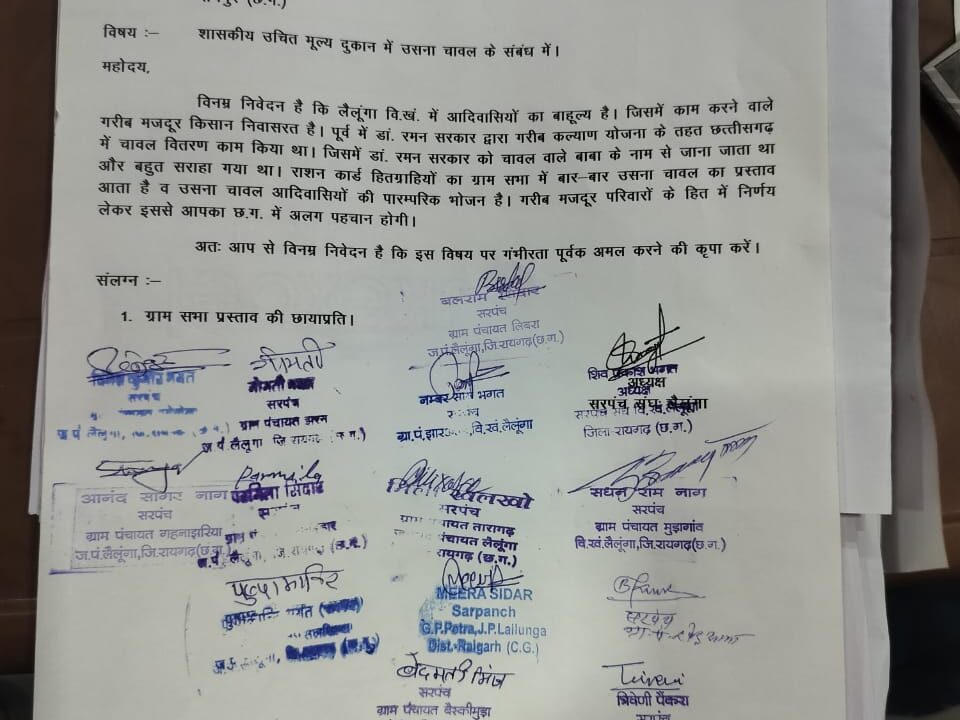 रायपुर (छ.ग.)
विषय :– शासकीय उचित मूल्य दुकान में उसना चावल के संबंध में।
महोदय,
विनम्र निवेदन है कि लैलूंगा वि.खं. में आदिवासियों का बाहूल्य है। जिसमें काम करने वाले
गरीब मजदूर किसान निवासरत है। पूर्व में डां. रमन सरकार द्वारा गरीब कल्याण योजना के तहत छत्तीसगढ़
में चावल वितरण काम किया था। जिसमें डां. रमन सरकार को चावल वाले बाबा के नाम से जाना जाता था
और बहुत सराहा गया था। राशन कार्ड हितग्राहियों का ग्राम सभा में बार–बार उसना चावल का प्रस्ताव
आता है व उसना चावल आदिवासियों की पारम्परिक भोजन है। गरीब मजदूर परिवारों के हित में निर्णय
लेकर इससे आपका छ.ग. में अलग पहचान होगी।
अतः आप से विनम्र निवेदन है कि इस विषय पर गंभीरता पूर्वक अमल करने की कृपा करें।
संलग्न :–
1. ग्राम सभा प्रस्ताव की छायाप्रति।
बलराम
सरपंच
ग्राम पंचायत लिबरा
ज.पं.लैलूंगा,जि.रायगढ़(छ.ग.)
भगत
सरपंच
ज.पं लैलूंगा,
गोमती
गोमती भगत
सरपंच
ग्राम पंचायत झरन
ज.पं.लैलूंगा जि रायगढ़
भगत
ग्रा.पं.झार वि.खं.लैलूंगा
शिव प्रकाश भगत
अध्यक्ष
अध्यक्ष
सरपंच संघ लैलूंगा
सरपंच संघ वि.खं.लैलूंगा
जिला रायगढ़ (छ.ग.)
आनंद सागर नाग
सरपंच
ग्राम पंचायत गहनाझरिया
ज.पं.लैलूंगा,जि.रायगढ़(छ.ग.)
Parmila
परमिला सिदार
खलखो
सरपंच
ग्राम पंचायत तारागढ़
पंचायत लैलूंगा
रायगढ़ (छ.ग.)
सधन राम नाग
सरपंच
ग्राम पंचायत मुड़ागांव
वि.खं.लैलूंगा,जि.रायगढ़(छ.ग.)
MEERA SIDAR
Sarpanch
G.P.Potra,J.P.Lailunga
Dist.-Raigarh (C.G.)
सरपंच
बेदमती मिंज
सरपंच
ग्राम पंचायत बैस्कीमुड़ा
Triveni
त्रिवेणी पैंकरा
सरपंच